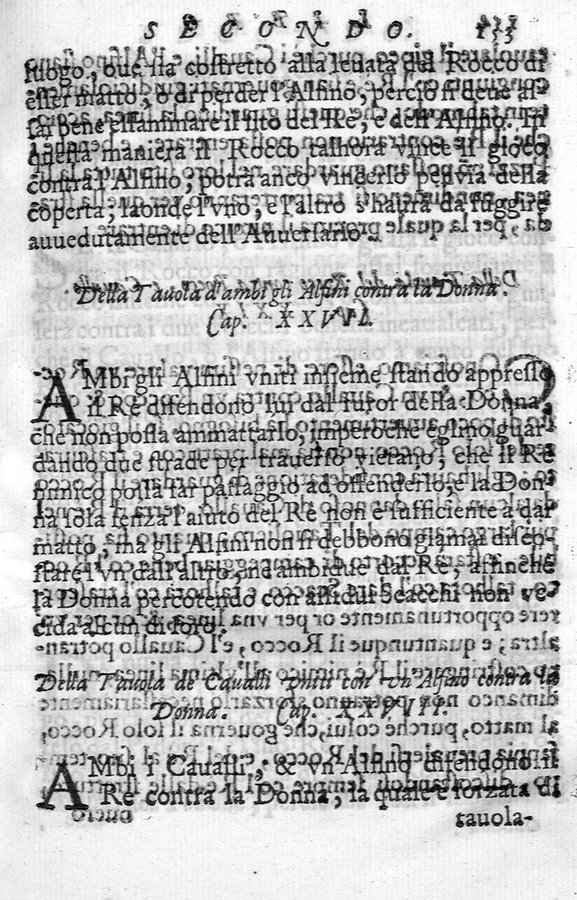 SECONDO. 133
luogo, oue sia costretto alla leuata dal Rocco di
esser matto, o di perder l'Alfino, perciò si deue as-
sai bene essaminare il sito del Re, e dell'Alfino. In
questa maniera il Rocco talhora vince il gioco
contra l'Alfino, potrà anco vincerlo per via della
coperta, laonde l'vno, e l'altro s'haurà da fuggire
auuedutamente dell'Auuersario.
Della Tauola d'ambi gli Alfini contra la Donna.
Cap. XXVVI.
AMbi gli Alfini vniti insieme stando appresso
il Re difendono lui dal furor della Donna,
che non possa ammattarlo, imperoche eglino guar
dando due strade per trauerso vietano, che il Re
nimico possa far passaggio ad offenderlo, e la Don-
na sola senza l'aiuto del Re non è sufficiente a dar
matto, ma gli Alfini non si debbono giamai disco-
stare l'vn dall'altro, nè ambidue dal Re, affinche
la Donna percotendo con assidui Scacchi non ve-
cida alcun di loro.
Della Tauola de Caualli vniti con vn Alfino contra la
Donna. Cap. XXVVII.
AMbi i Caualli, & vn Alfino difendono il
Re contra la Donna, la quale è forzata di
tauola-